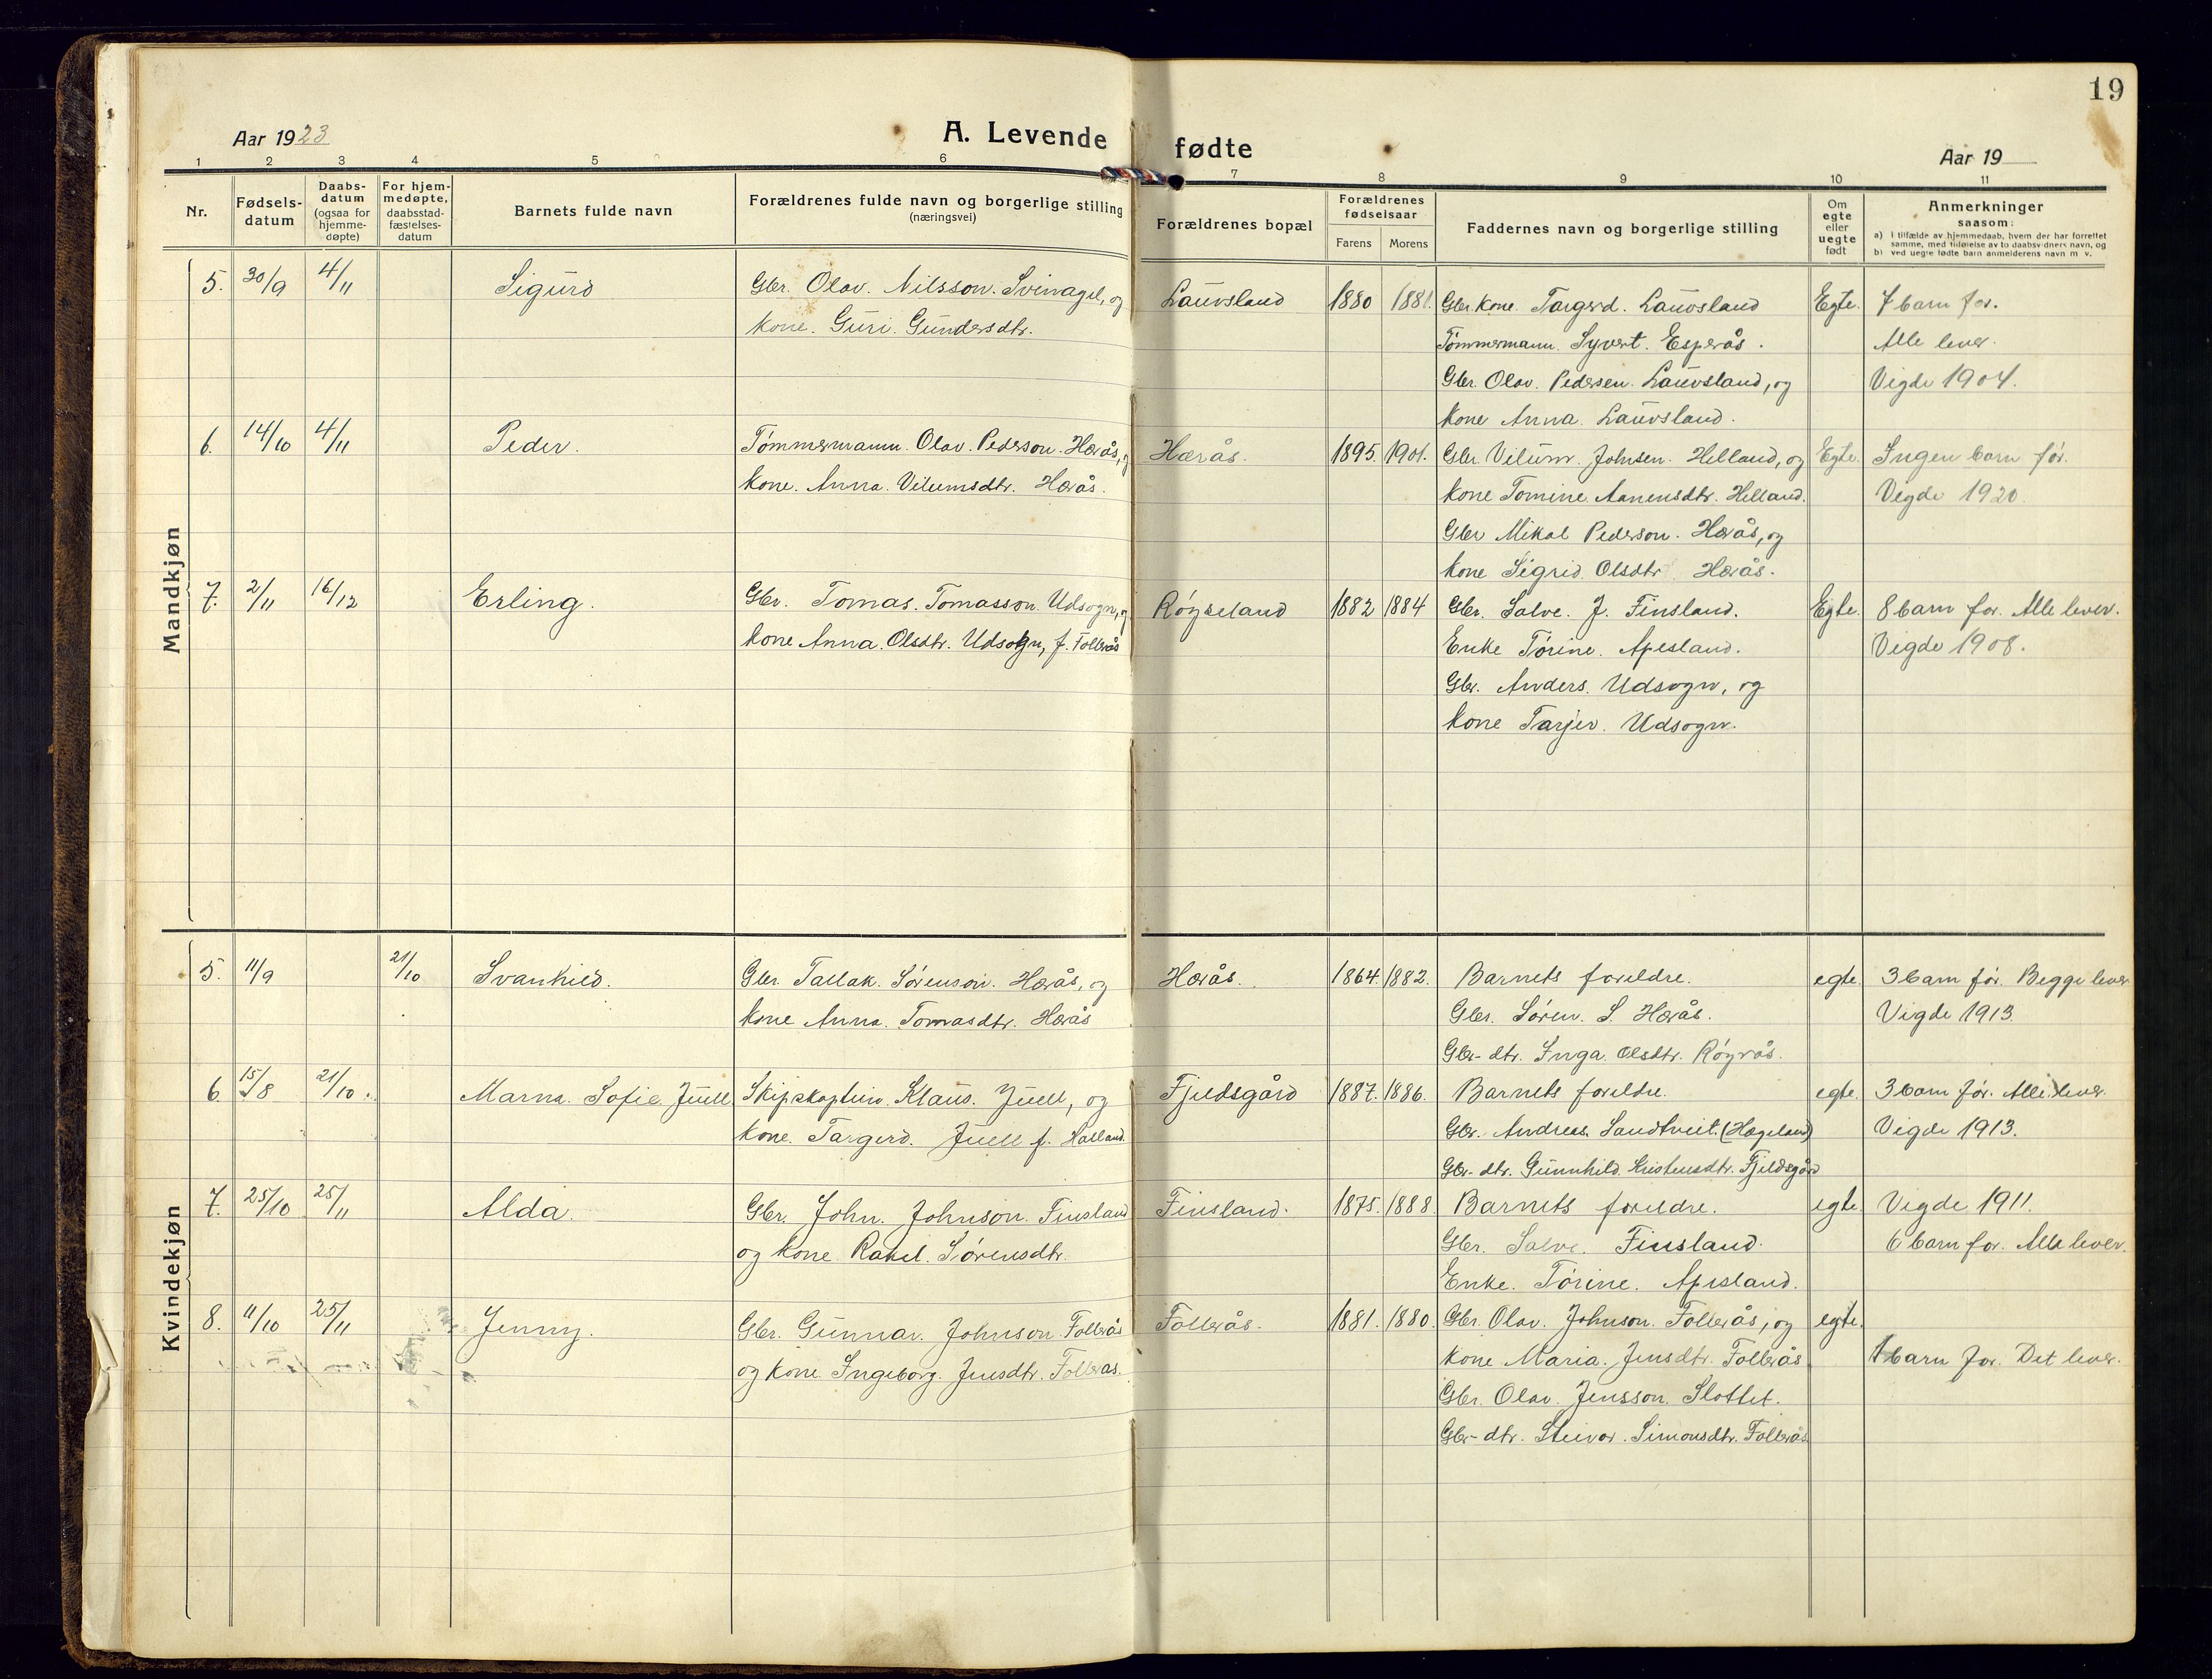 19
Aar 1923
A. Levende fødte
Aar 19
1 2 3 4 5 6 7 8 9 10 11
Nr.
Fødsels-
datum
Daabs-
datum
(ogsaa for
hjemme-
døpte)
For hjem-
medøpte,
daabsstad-
fæstelses-
datum
Barnets fulde navn
Forældrenes fulde navn og borgerlige stilling
(næringsvei)
Forældrenes bopæl
Forældrenes
fødselsaar
Farens Morens
Faddernes navn og borgerlige stilling
Om
egte
eller
uegte
født
Anmerkninger
saasom:
a) i tilfælde av hjemmedaab, hvem der har forrettet
samme, med tilføielse av to daabsvidners navn, og
b) ved uegte fødte barn anmelderens navn m. v.
Mandkjøn
5. 30/9 4/11 Sigurd Gbr. Olav. Nilsson. Svinagel, og Lauvsland 1880 1881. Gbr. kone. Targerd. Lauvsland Egte. 7 barn før.
kone. Guri. Gundersdtr. Tømmermann. Syvert. Esperås. Alle lever.
Gbr. Olav. Pedersen. Lauvsland, og Vigde 1904.
kone Anna. Lauvsland.
6. 14/10 4/11 Peder. Tømmermann. Olav. Pederson. Herås, og Herås. 1895. 1901. Gbr. Vilum. Johnsen. Helland, og Egte. Ingen barn før.
kone. Anna. Vilumsdtr. Herås. kone Tomine Aanensdtr. Helland. Vigde 1920.
Gbr Mikal Pederson. Herås, og
kone Sigrid Olsdtr Herås.
7. 2/11 16/12 Erling. Gbr. Tomas. Tomasson. Udsogn, og Røyseland 1882 1884 Gbr. Salve. J. Finsland. Egte. 8 barn før. Alle lever.
kone Anna. Olsdtr. Udsogn, f. Follerås Enke Tørine. Apesland. Vigde 1908.
Gbr. Anders. Udsogn, og
kone Tarjer. Udsogn.
Kvindekjøn
5. 11/9 21/10 Svanhild. Gbr. Tallak. Sørenson. Herås, og Herås. 1864. 1882. Barnets foreldre. egte. 3 barn før. Begge lever
kone Anna. Tomasdtr. Herås Gbr. Søren. S. Herås. Vigde 1913.
Gbr-dtr. Inga. Olsdtr. Røyrås.
6. 15/8 21/10. Marna. Sofie Juell Skipskaptein. Klaus. Juell, og Fjeldsgård 1887. 1886. Barnets foreldre. egte. 3 barn før. Alle lever.
kone. Targerd. Juell f. Halland. Gbr. Andreas. Sandtveit. (Hægeland) Vigde 1913.
Gbr-dtr. Gunnhild. Kristensdtr. Fjeldsgård
7. 25/10 25/11 Alda. Gbr. John. Johnson. Finsland Finsland. 1875. 1888. Barnets foreldre. egte. Vigde 1911.
og kone Rakel. Sørensdtr. Gbr. Salve. Finsland. 6 barn før. Alle lever.
Enke. Tørine. Apesland.
8. 11/10 25/11 Jenny. Gbr. Gunnar. Johnson. Follerås Follerås. 1881. 1880. Gbr. Olav. Johnson. Follerås, og egte.
og kone Ingeborg. Jensdtr. Follerås. kone Maria. Jensdtr. Follerås 1 barn før. Det lever.
Gbr. Olav. Jensson. Slottet.
Gbr-dtr. Steivor. Simonsdtr. Follerås